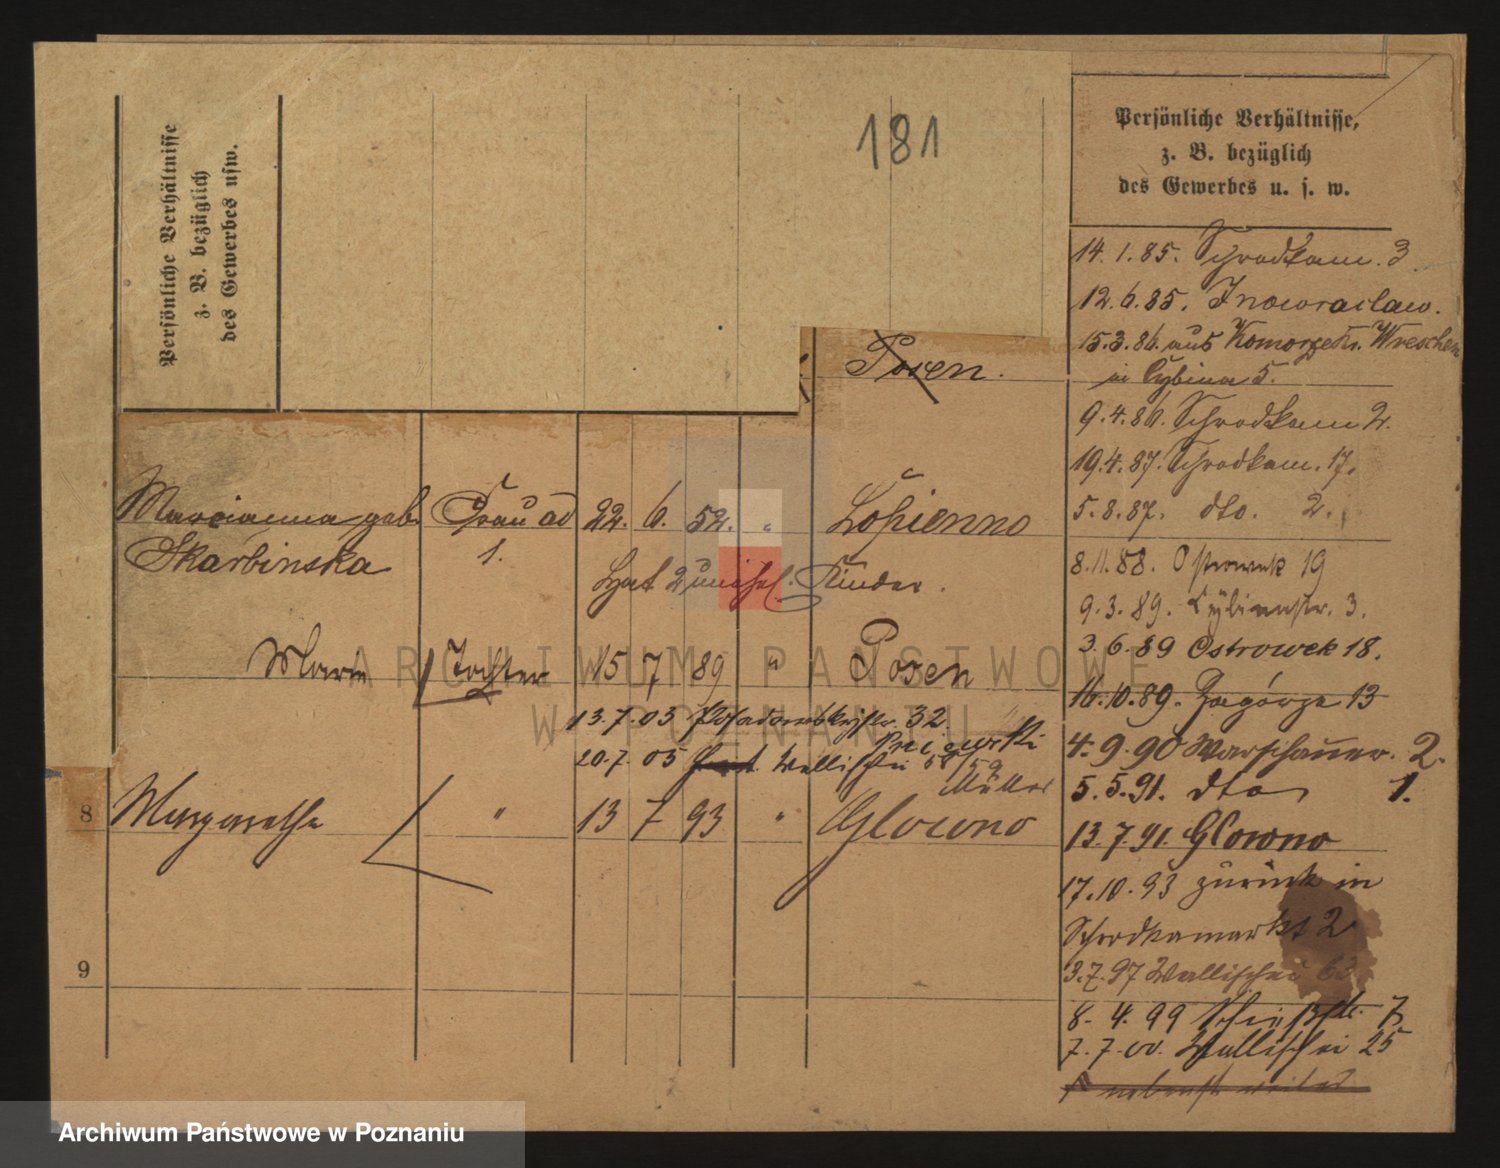 Persönliche Verhältnisse
z. B. bezüglich
des Gewerbes usw.
181
Posen.
Marcianna geb. Frau ad 22. 6. 52. " Lopienno
Skarbinska 1.
Hat 2 unehel. Kinder.
Marie Tochter 15 7 89 " Posen
13.7.03 32.
20.7.05 Wallischei
Müller
8 Margarethe " 13 7 93 " Glowno
9
Persönliche Verhältnisse,
z. B. bezüglich
des Gewerbes u. s. w.
14.1.85. Schrodkam. 3
12.6.85. Inowraclaw.
15.3.86. aus Komorze Kr. Wreschen
in Cybina 5.
9.4.86. Schrodkam 2.
19.4.87. Schrodkam. 17.
5.8.87. dto. 2.
8.11.88. Ostrowek 19
9.3.89. Cybinastr. 3.
3.6.89 Ostrowek 18.
16.10.89. Zagórze 13
4.9.90 Warschauer. 2.
5.5.91. dto 1.
13.7.91. Glowno
17.10.93 zurück in
Schrodkamarkt 2
3.7.97 Wallischei 62
8.4.99 7
7.7.00. Wallischei 25
ARCHIWUM PAŃSTWOWE
W POZNANIU
Archiwum Państwowe w Poznaniu